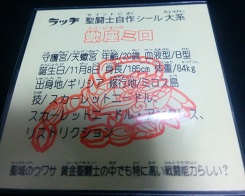 ラッテ 聖闘士自作シール大系
蠍座ミロ
守護宮/天蠍宮 年齢/20歳 血液型/B型
誕生日/11月8日 身長/185cm 体重/84kg
出身地/ギリシア 修行地/ミロス島
技/スカーレットニードル、
スカーレットニードル
リストリクション
聖域のウワサ 黄金聖闘士の中でも特に高い戦闘能力らしい?